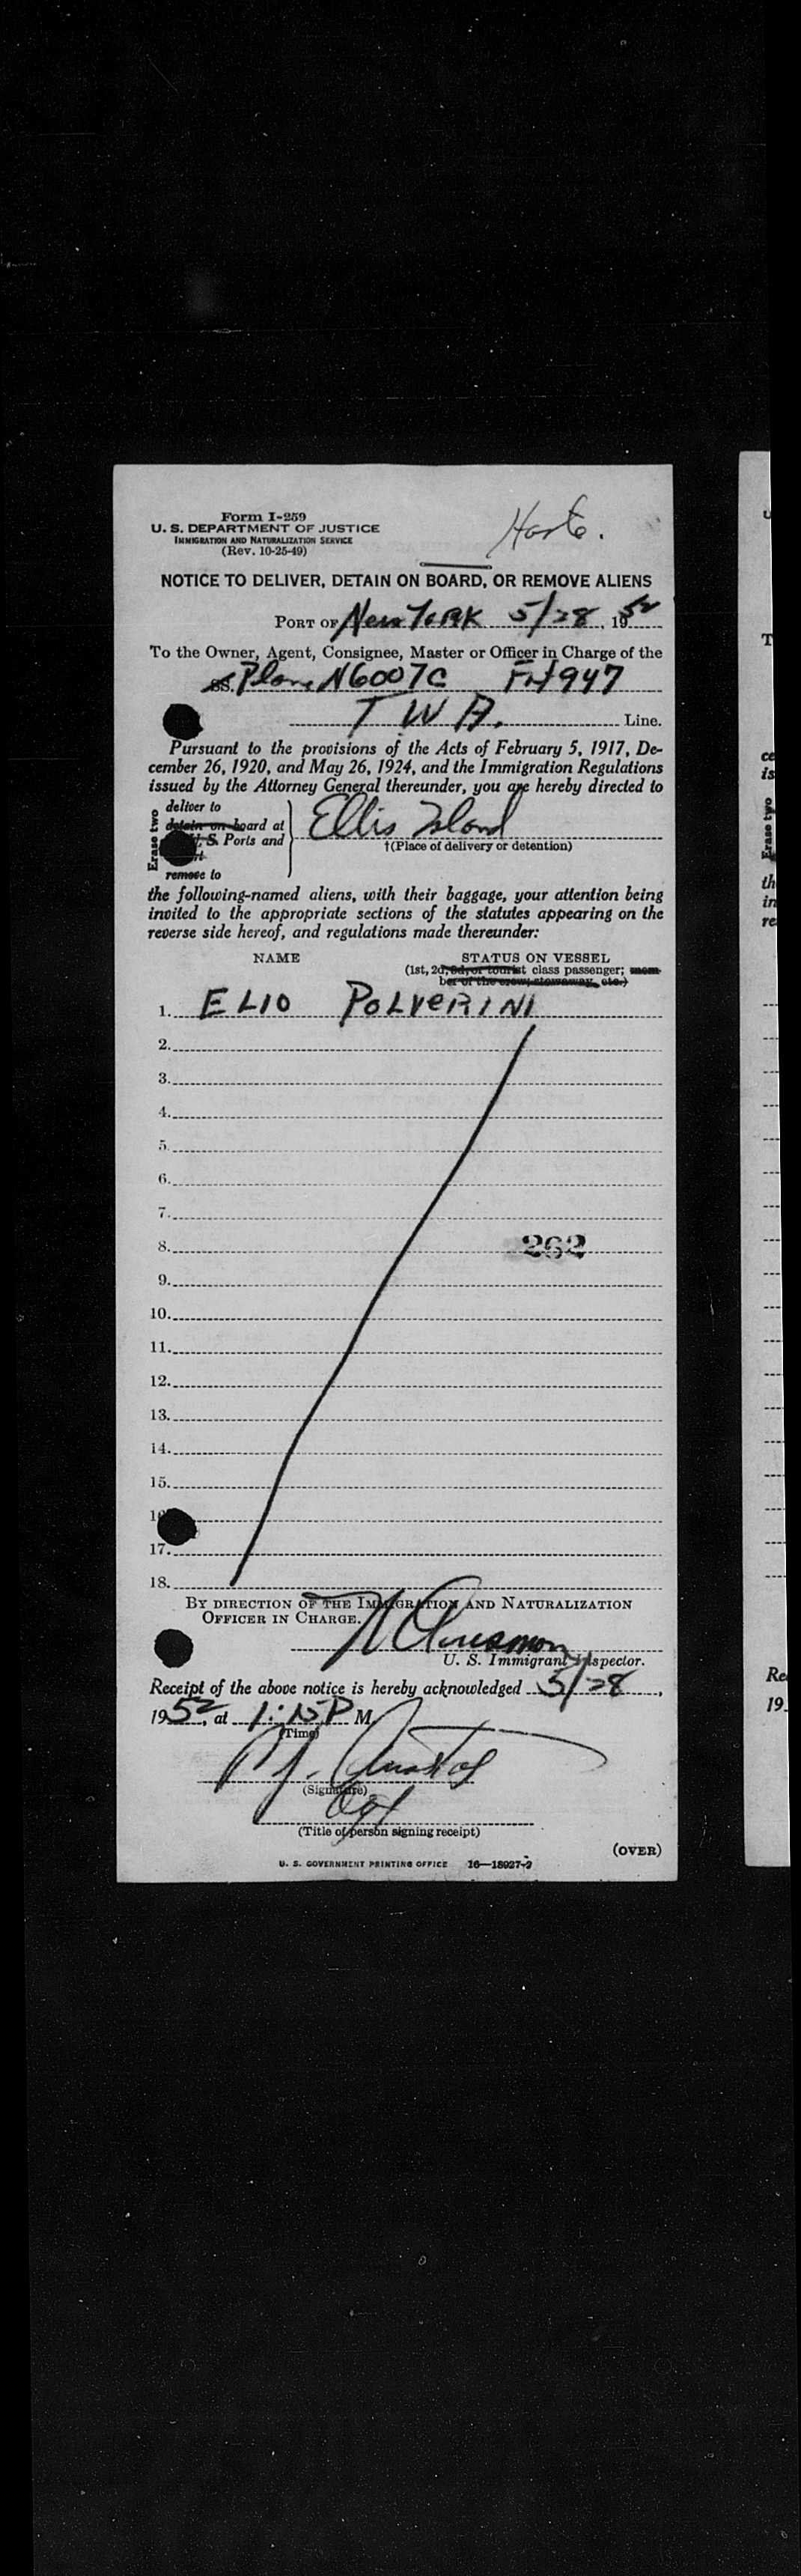 Form I-259
U. S. DEPARTMENT OF JUSTICE
IMMIGRATION AND NATURALIZATION SERVICE
(Rev. 10-25-49)
NOTICE TO DELIVER, DETAIN ON BOARD, OR REMOVE ALIENS
PORT OF New York 5/28, 1952
To the Owner, Agent, Consignee, Master or Officer in Charge of the
SS. Plane N6007C Flt 947
T W A. Line.
Pursuant to the provisions of the Acts of February 5, 1917, De-
cember 26, 1920, and May 26, 1924, and the Immigration Regulations
issued by the Attorney General thereunder, you are hereby directed to
Erase two
deliver to
detain on board at
U. S. Ports and
remove to
Ellis Island
†(Place of delivery or detention)
the following-named aliens, with their baggage, your attention being
invited to the appropriate sections of the statutes appearing on the
reverse side hereof, and regulations made thereunder:
NAME STATUS ON VESSEL
(1st, 2d, 3d, or tourist class passenger; mem-
ber of the crew, stowaway, etc.)
1. ELIO POLVERINI
2.
3.
4.
5.
6.
7.
8. 262
9.
10.
11.
12.
13.
14.
15.
16
17.
18.
BY DIRECTION OF THE IMMIGRATION AND NATURALIZATION
OFFICER IN CHARGE.
U. S. Immigrant Inspector.
Receipt of the above notice is hereby acknowledged 5/28,
1952, at 1:15 P M
(Time)
(Signature)
(Title of person signing receipt)
(OVER)
U. S. GOVERNMENT PRINTING OFFICE 16—18027-2